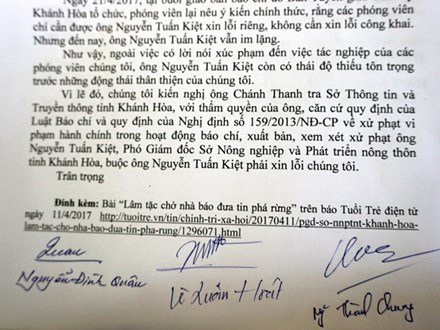 Ngày 21/4/2017, tại buổi giao ban báo chí do
Khánh Hòa tổ chức, phóng viên lại nêu ý kiến chính thức, rằng các phóng viên
chỉ cần được ông Nguyễn Tuấn Kiệt xin lỗi riêng, không cần xin lỗi công khai.
Nhưng đến nay, ông Nguyễn Tuấn Kiệt vẫn im lặng.
Như vậy, ngoài việc có lời nói xúc phạm đến việc tác nghiệp của các
phóng viên chúng tôi, ông Nguyễn Tuấn Kiệt còn có thái độ thiếu tôn trọng
trước những động thái thân thiện của chúng tôi.
Vì lẽ đó, chúng tôi kiến nghị ông Chánh Thanh tra Sở Thông tin và
Truyền thông tỉnh Khánh Hòa, với thẩm quyền của ông, căn cứ quy định của
Luật Báo chí và quy định của Nghị định số 159/2013/NĐ-CP về xử phạt vi
phạm hành chính trong hoạt động báo chí, xuất bản, xem xét xử phạt ông
Nguyễn Tuấn Kiệt, Phó Giám đốc Sở Nông nghiệp và Phát triển nông thôn
tỉnh Khánh Hòa, buộc ông Nguyễn Tuấn Kiệt phải xin lỗi chúng tôi.
Trân trọng
Đính kèm: Bài "Lâm tặc chở nhà báo đưa tin phá rừng" trên báo Tuổi Trẻ điện tử
ngày 11/4/2017 http://tuoitre.vn/tin/chinh-tri-xa-hoi/20170411/pgd-so-nnptnt-khanh-hoa-
lam-tac-cho-nha-bao-dua-tin-pha-rung/1296071.html
Nguyễn Đình Quân
Lê Xuân Hoát
Thành Chung